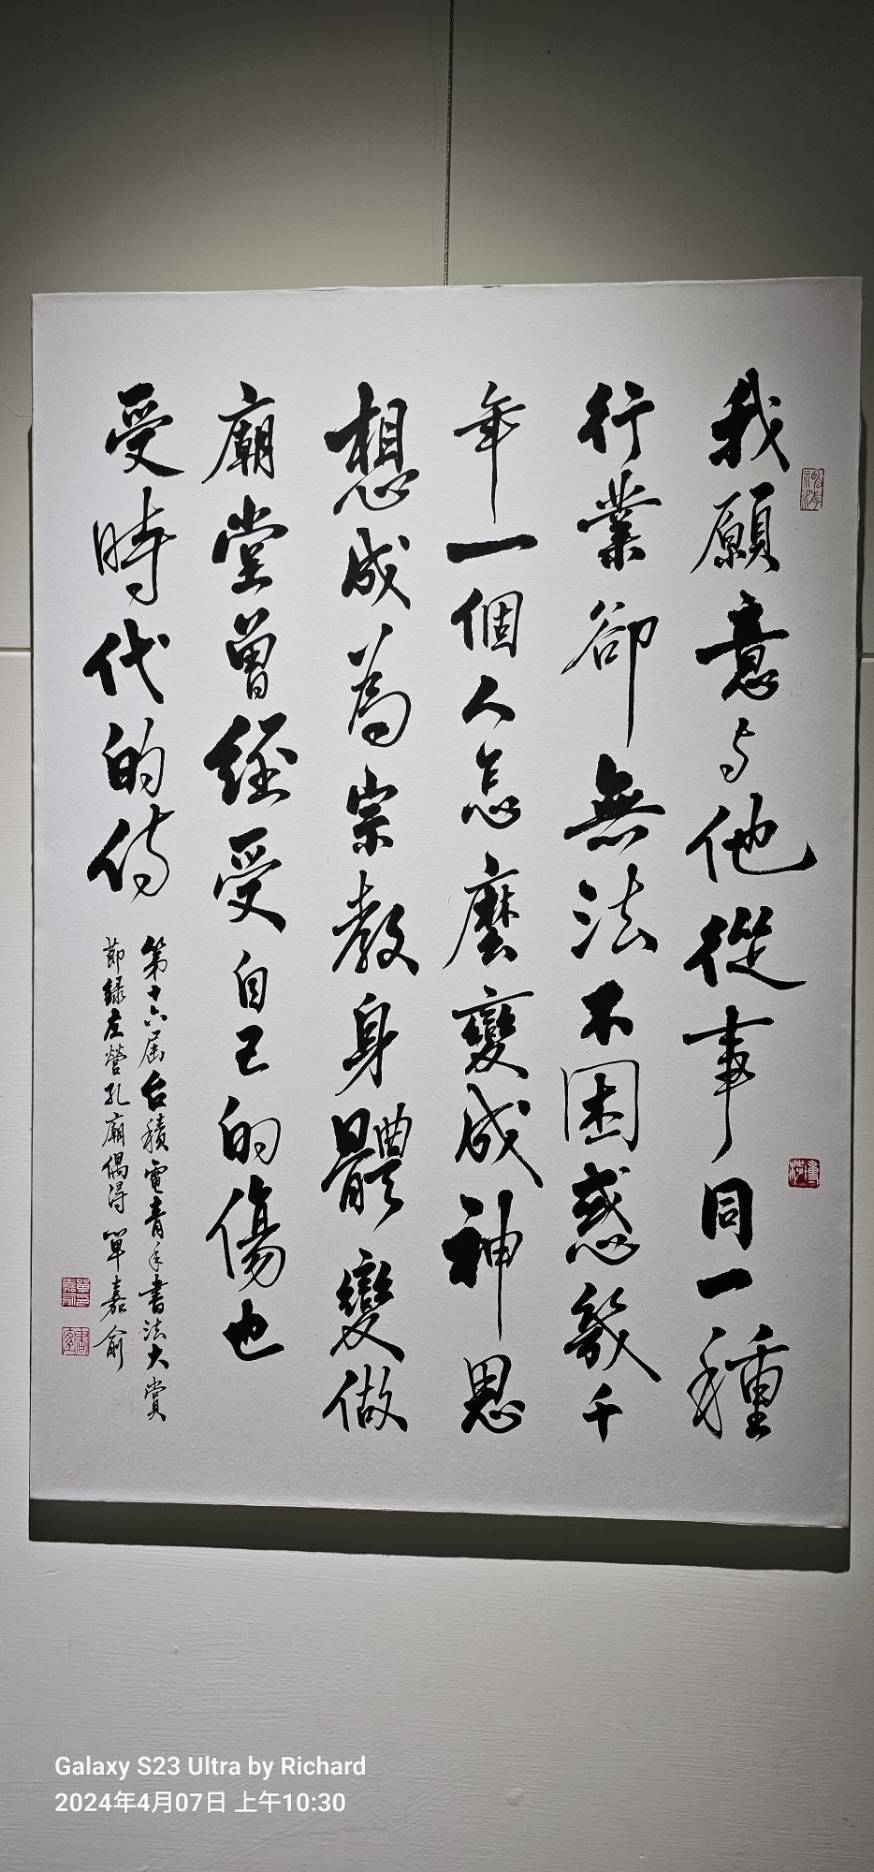 我願意与他從事同一種
行業卻無法不困惑幾千
年一個人怎麼變成神思
想成為宗教身體變做
廟堂曾經受自己的傷也
受時代的傷
第十六屆台積電青年書法大賞
節錄左營孔廟偶得 單嘉俞
Galaxy S23 Ultra by Richard
2024年4月07日 上午10:30